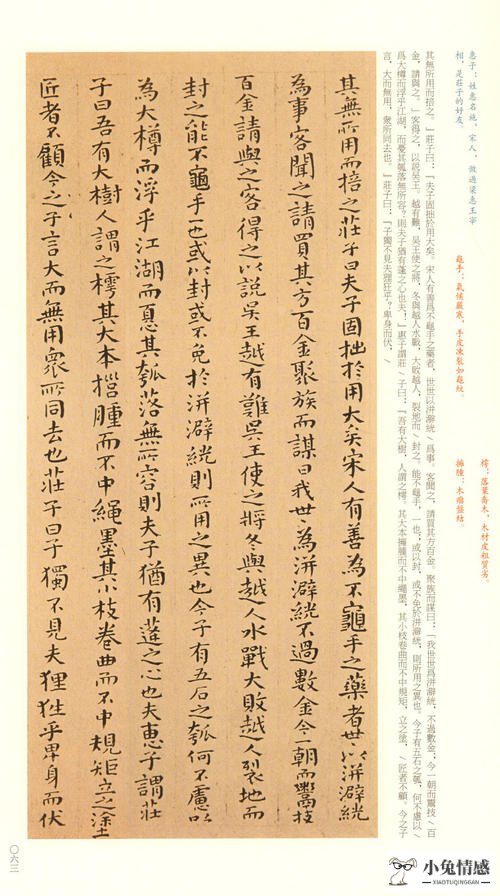 惠子：姓惠名施，宋人，做過梁惠王宰
相，是莊子的好友。
龜手：氣候嚴寒，手皮凍裂如龜紋。
樗：落葉喬木，木材皮粗質劣。
擁腫：木瘤盤結。
其無所用而掊之。」莊子曰：「夫子固拙於用大矣。宋人有善爲不龜手之藥者，世世以洴澼絖\爲事。客聞之，請買其方百金。聚族而謀曰：『我世世爲洴澼絖，不過數金，今一朝而鬻技\百
金，請與之。』客得之，以說吳王。越有難，吳王使之將，冬與越人水戰，大敗越人，裂地而\封之。能不龜手，一也；或以封，或不免於洴澼絖，則所用之異也。今子有五石之瓠，何不慮以\
爲大樽而浮乎江湖，而憂其瓠落無所容？則夫子猶有蓬之心也夫！」惠子謂莊\子曰：「吾有大樹，人謂之樗。其大本擁腫而不中繩墨，其小枝卷曲而不中規矩，立之塗，\匠者不顧。今之子
言，大而無用，衆所同去也。」莊子曰：「子獨不見夫狸狌乎？卑身而伏，\
其無所用而掊之莊子曰夫子固拙於用大矣宋人有善為不龜手之藥者世〻以洴澼絖
為事客聞之請買其方百金聚族而謀曰我世〻為洴澼絖不過數金今一朝而鬻技
百金請與之客得之以說吳王越有難吳王使之將冬與越人水戰大敗越人裂地而
封之能不龜手一也或以封或不免於洴澼絖則所用之異也今子有五石之瓠何不慮以
為大樽而浮乎江湖而憂其瓠落無所容則夫子猶有蓬之心也夫惠子謂莊
子曰吾有大樹人謂之樗其大本擁腫而不中繩墨其小枝卷曲而不中規矩立之塗
匠者不顧今之子言大而無用衆所同去也莊子曰子獨不見夫狸狌乎卑身而伏
〇六三
小兔情感
XIAOTUQINGGAN